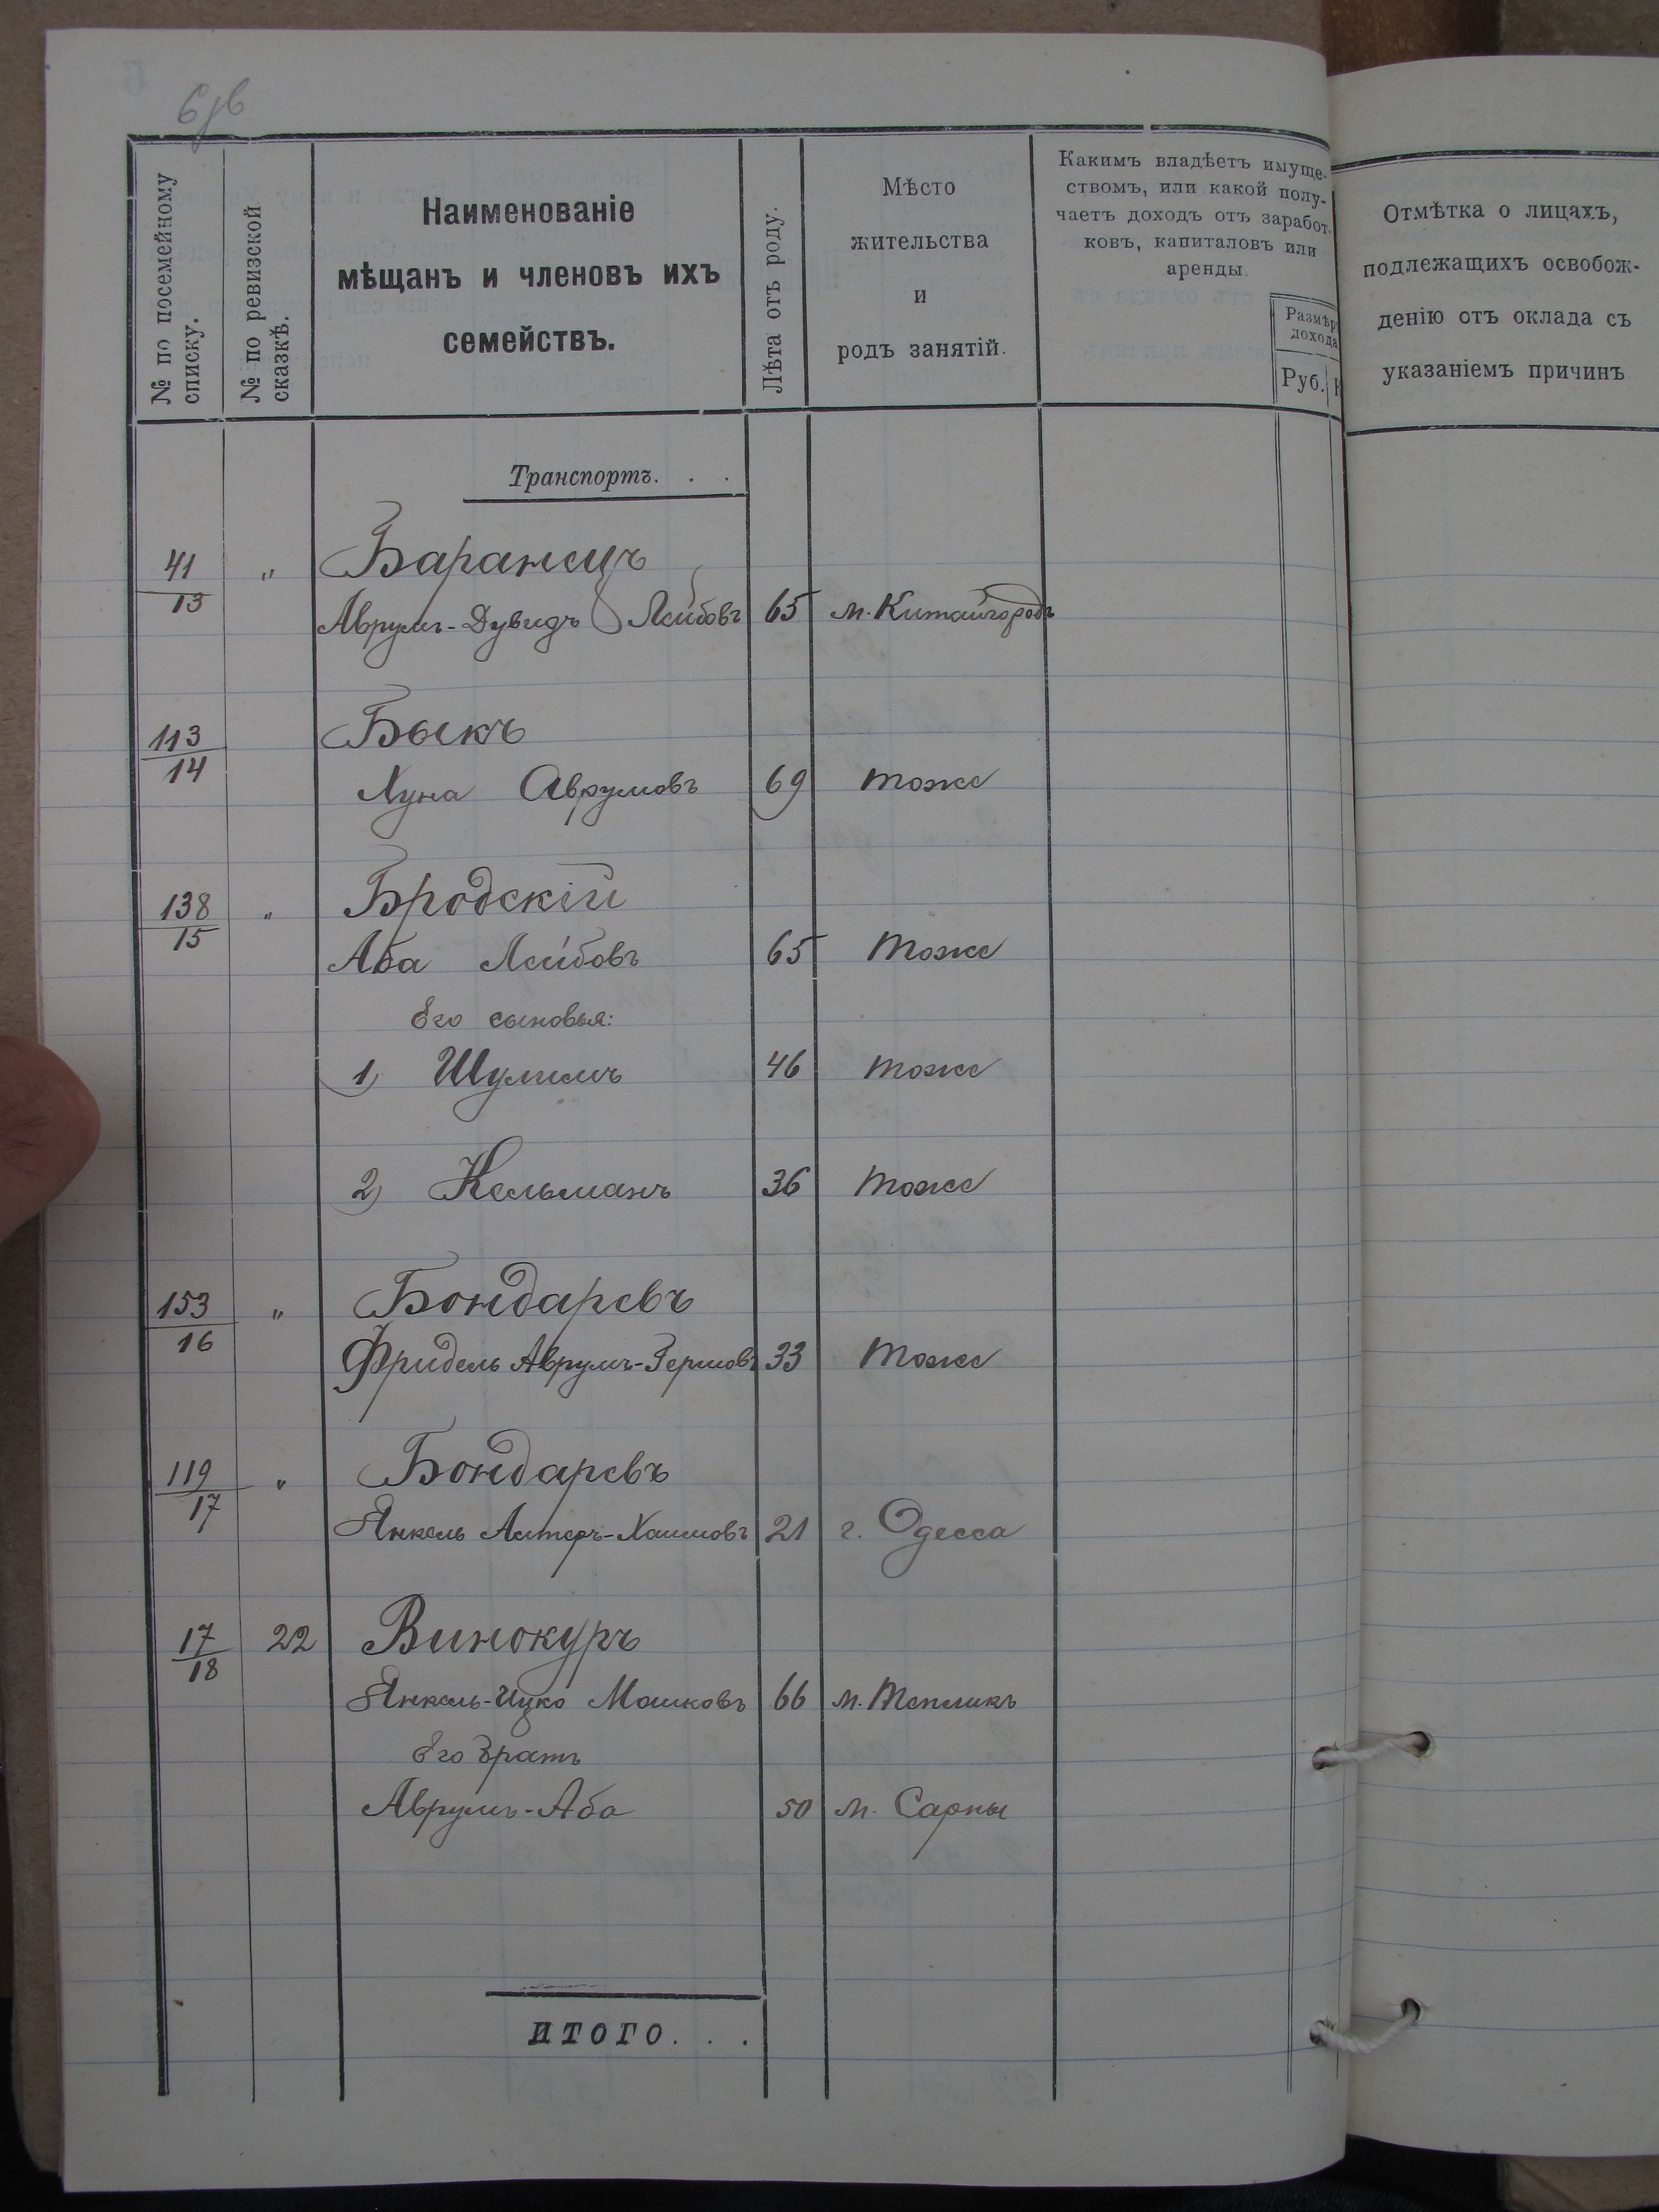 6об
№ по посемейному списку.
№ по ревизской сказкѣ.
Наименованіе
мѣщанъ и членовъ ихъ
семействъ.
Лѣта отъ роду.
Мѣсто
жительства
и
родъ занятій.
Какимъ владѣетъ имуще-
ствомъ, или какой полу-
чаетъ доходъ отъ заработ-
ковъ, капиталовъ или
аренды.
Размѣръ
дохода
Руб.
Отмѣтка о лицахъ,
подлежащихъ освобож-
денію отъ оклада съ
указаніемъ причинъ
Транспортъ. . .
41/13 " Баранецъ
Аврумъ-Дувидъ Лейбовъ 65 м. Китайгородъ
113/14 Быкъ
Хуна Аврумовъ 69 тоже
138/15 " Бродскій
Аба Лейбовъ 65 тоже
Его сыновья:
1) Шулимъ 46 тоже
2) Кельманъ 36 тоже
153/16 " Бондаревъ
Фридель Аврумъ-Гершовъ 33 тоже
119/17 " Бондаревъ
Янкель Алтеръ-Хаимовъ 21 г. Одесса
17/18 22 Винокуръ
Янкель-Ицко Мошковъ 66 м. Тепликъ
Его братъ
Аврумъ-Аба 50 м. Сарны
ИТОГО. . .